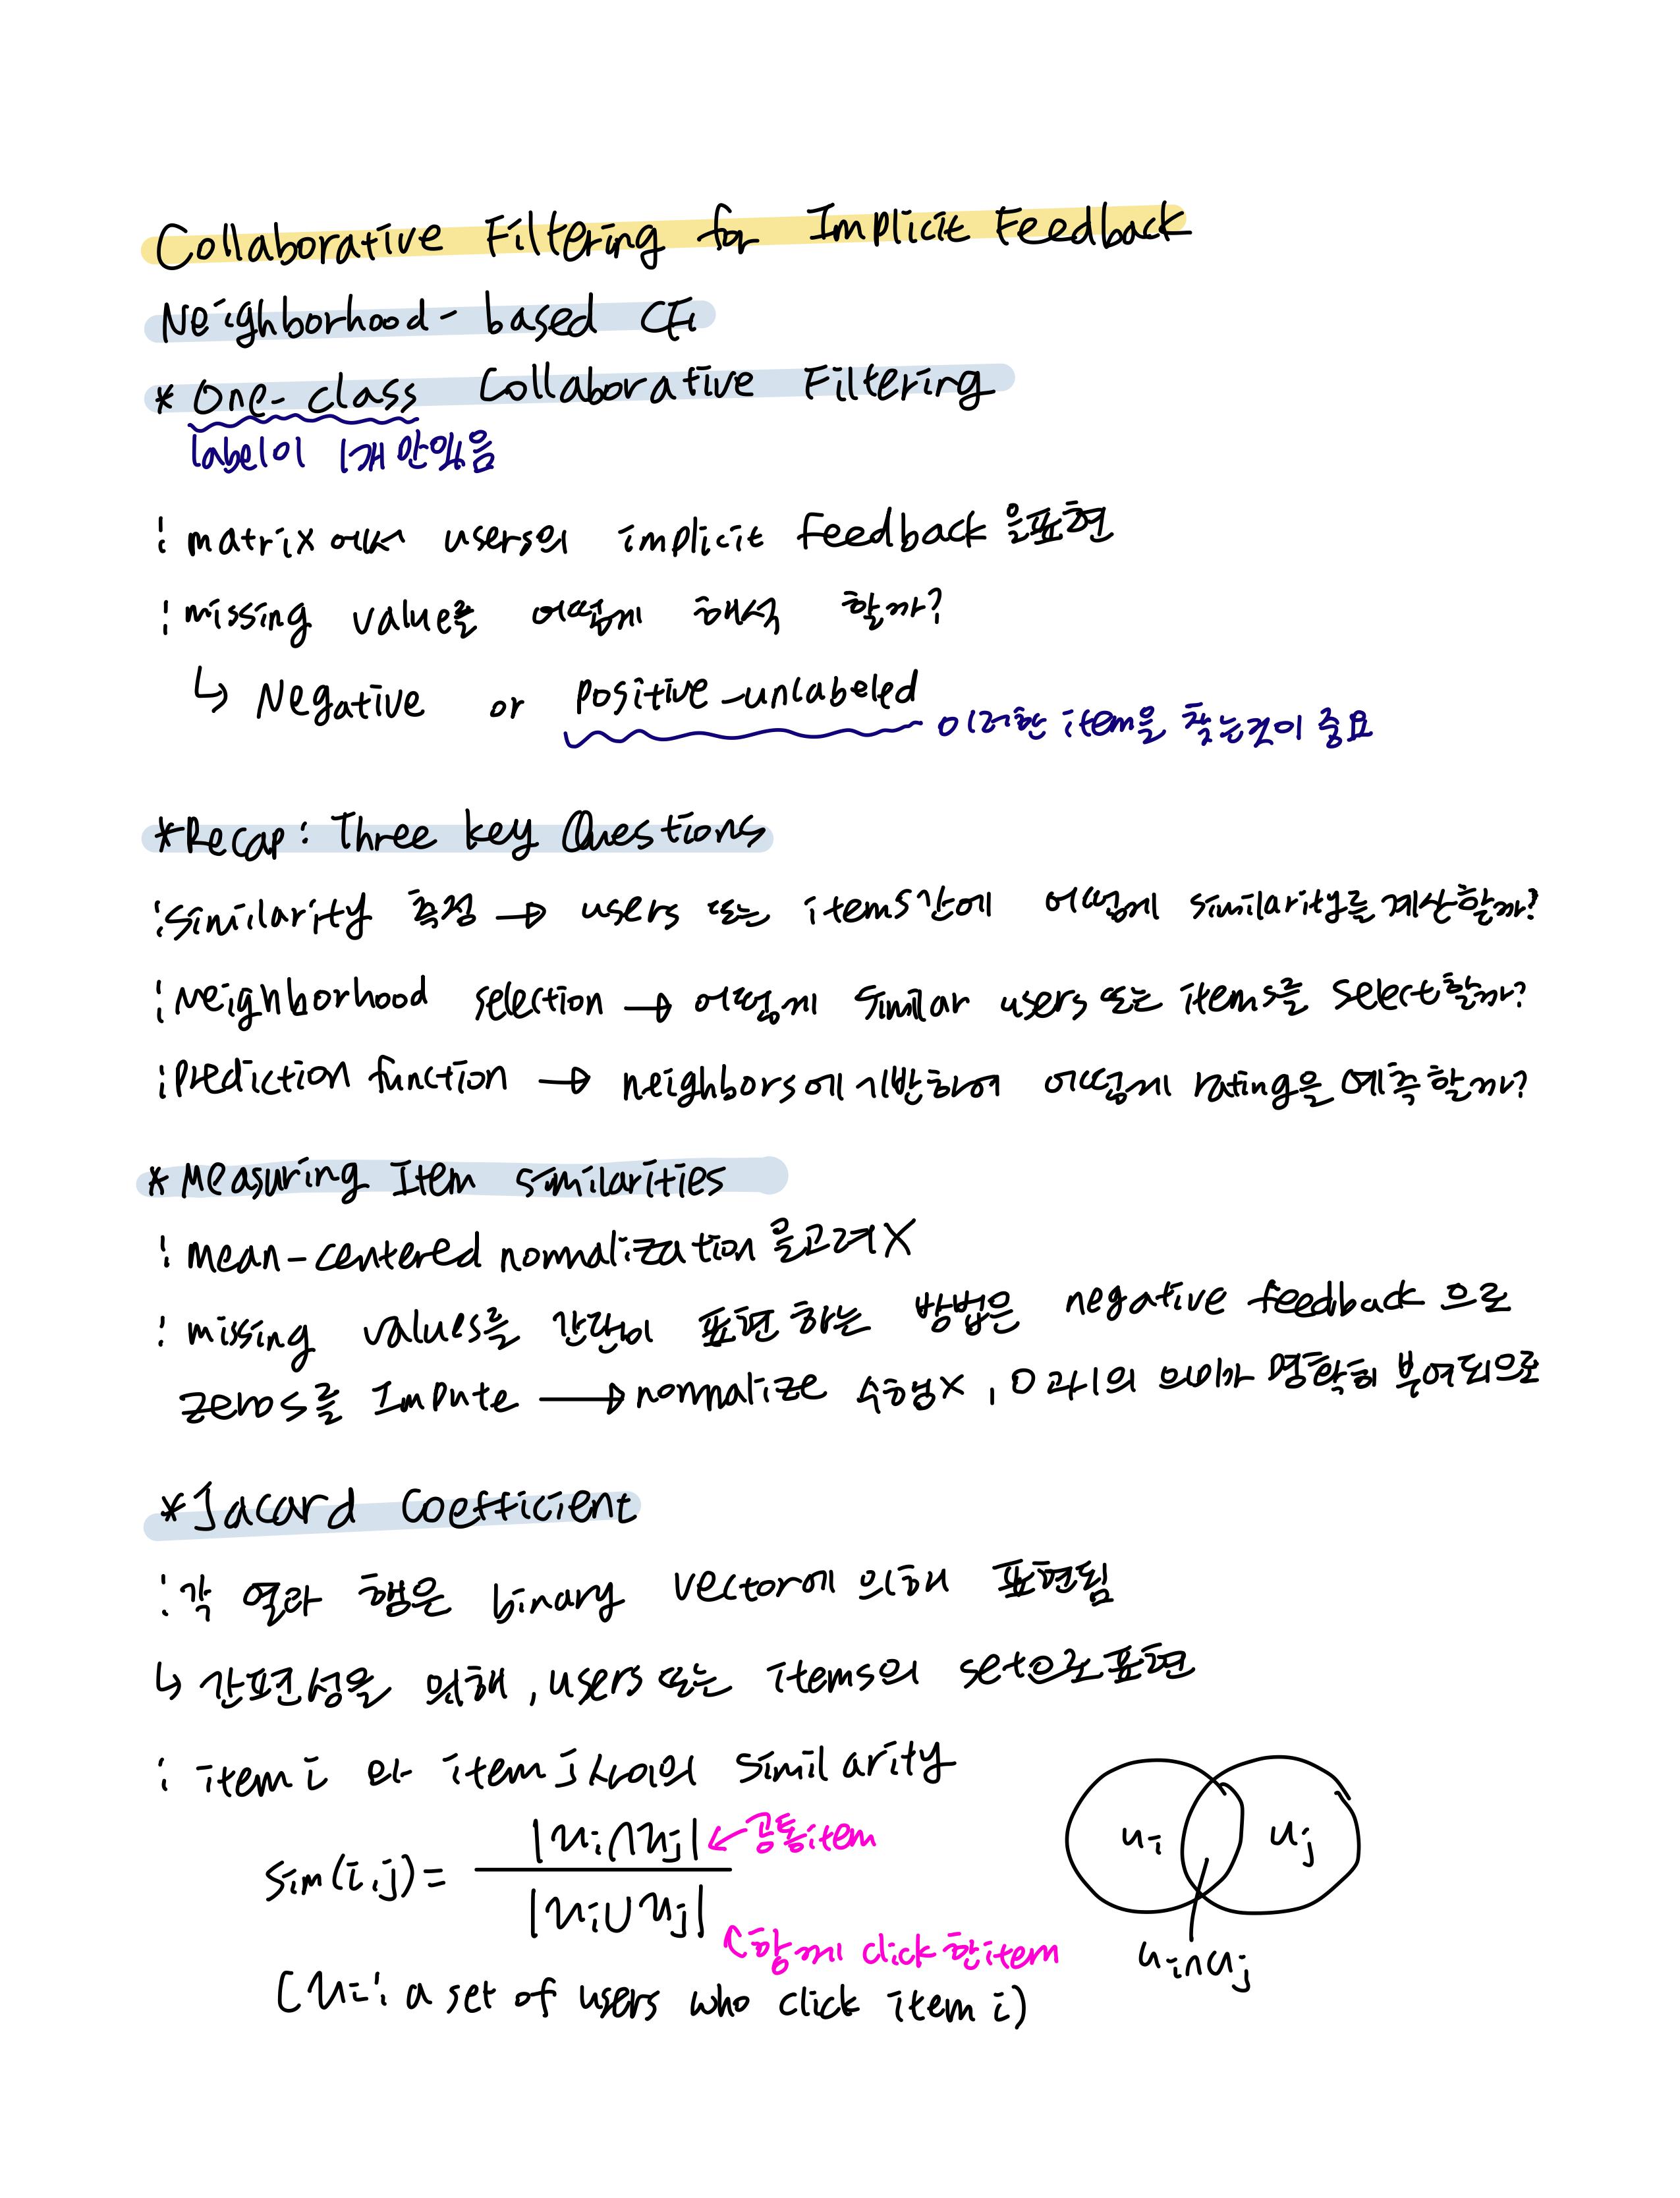 Collaborative Filtering for Implicit Feedback
Neighborhood-based CF
* One-class Collaborative Filtering
label이 1개만있음
: matrix에서 users의 implicit feedback을표현
: missing value를 어떻게 해석 할까?
↳ Negative or positive-unlabeled 이러한 item을 찾는것이 중요
*Recap: Three key Questions
:similarity 측정 → users 또는 items간에 어떻게 similarity를 계산할까?
:Neighborhood selection → 어떻게 similar users 또는 items를 select할까?
:prediction function → neighbors에기반하여 어떻게 rating을 예측할까?
* Measuring Item similarities
: mean-centered normalization을고려X
: missing values를 간단히 표현하는 방법은 negative feedback으로
zeros를 Impute → normalize 수행X, 0과1의 의미가 명확히 부여되므로
*Jacard Coefficient
: 각 열과 행은 binary vector에 의해 표현됨
↳ 간편성을 위해, users또는 items의 set으로표현
: item i 와 item j사이의 similarity
sim(i,j) = |Ui∩Uj| ←공통item
|Ui∪Uj|
함께 click한item
(Ui: a set of users who click item i)
ui uj
ui∩uj